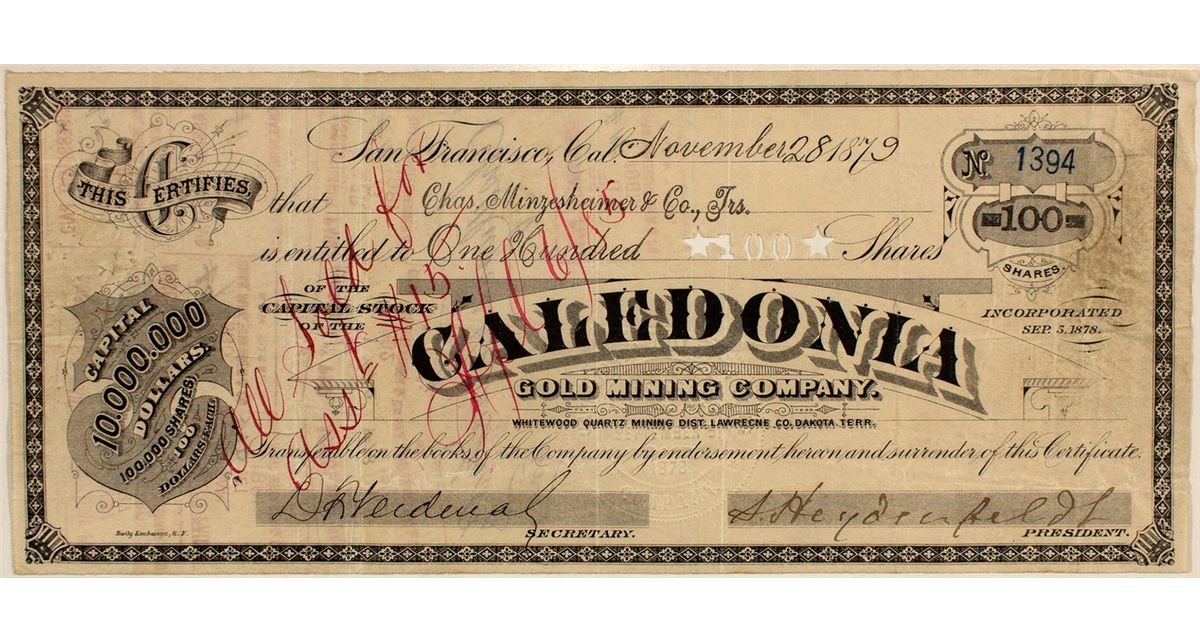 San Francisco, Cal. November 28 1879
THIS CERTIFIES
that Chas. Minzesheimer & Co., Trs.
is entitled to One Hundred ★100★ Shares
No. 1394
100
SHARES.
INCORPORATED
SEP. 5, 1878.
OF THE
CAPITAL STOCK
OF THE
CALEDONIA
GOLD MINING COMPANY.
WHITEWOOD QUARTZ MINING DIST. LAWRECNE CO. DAKOTA TERR.
CAPITAL
10,000.000
DOLLARS.
100,000 SHARES
100
DOLLARS EACH.
Transferable on the books of the Company by endorsement hereon and surrender of this Certificate.
SECRETARY.
S. Heydenfeldt
PRESIDENT.
Daily Exchange, S. F.